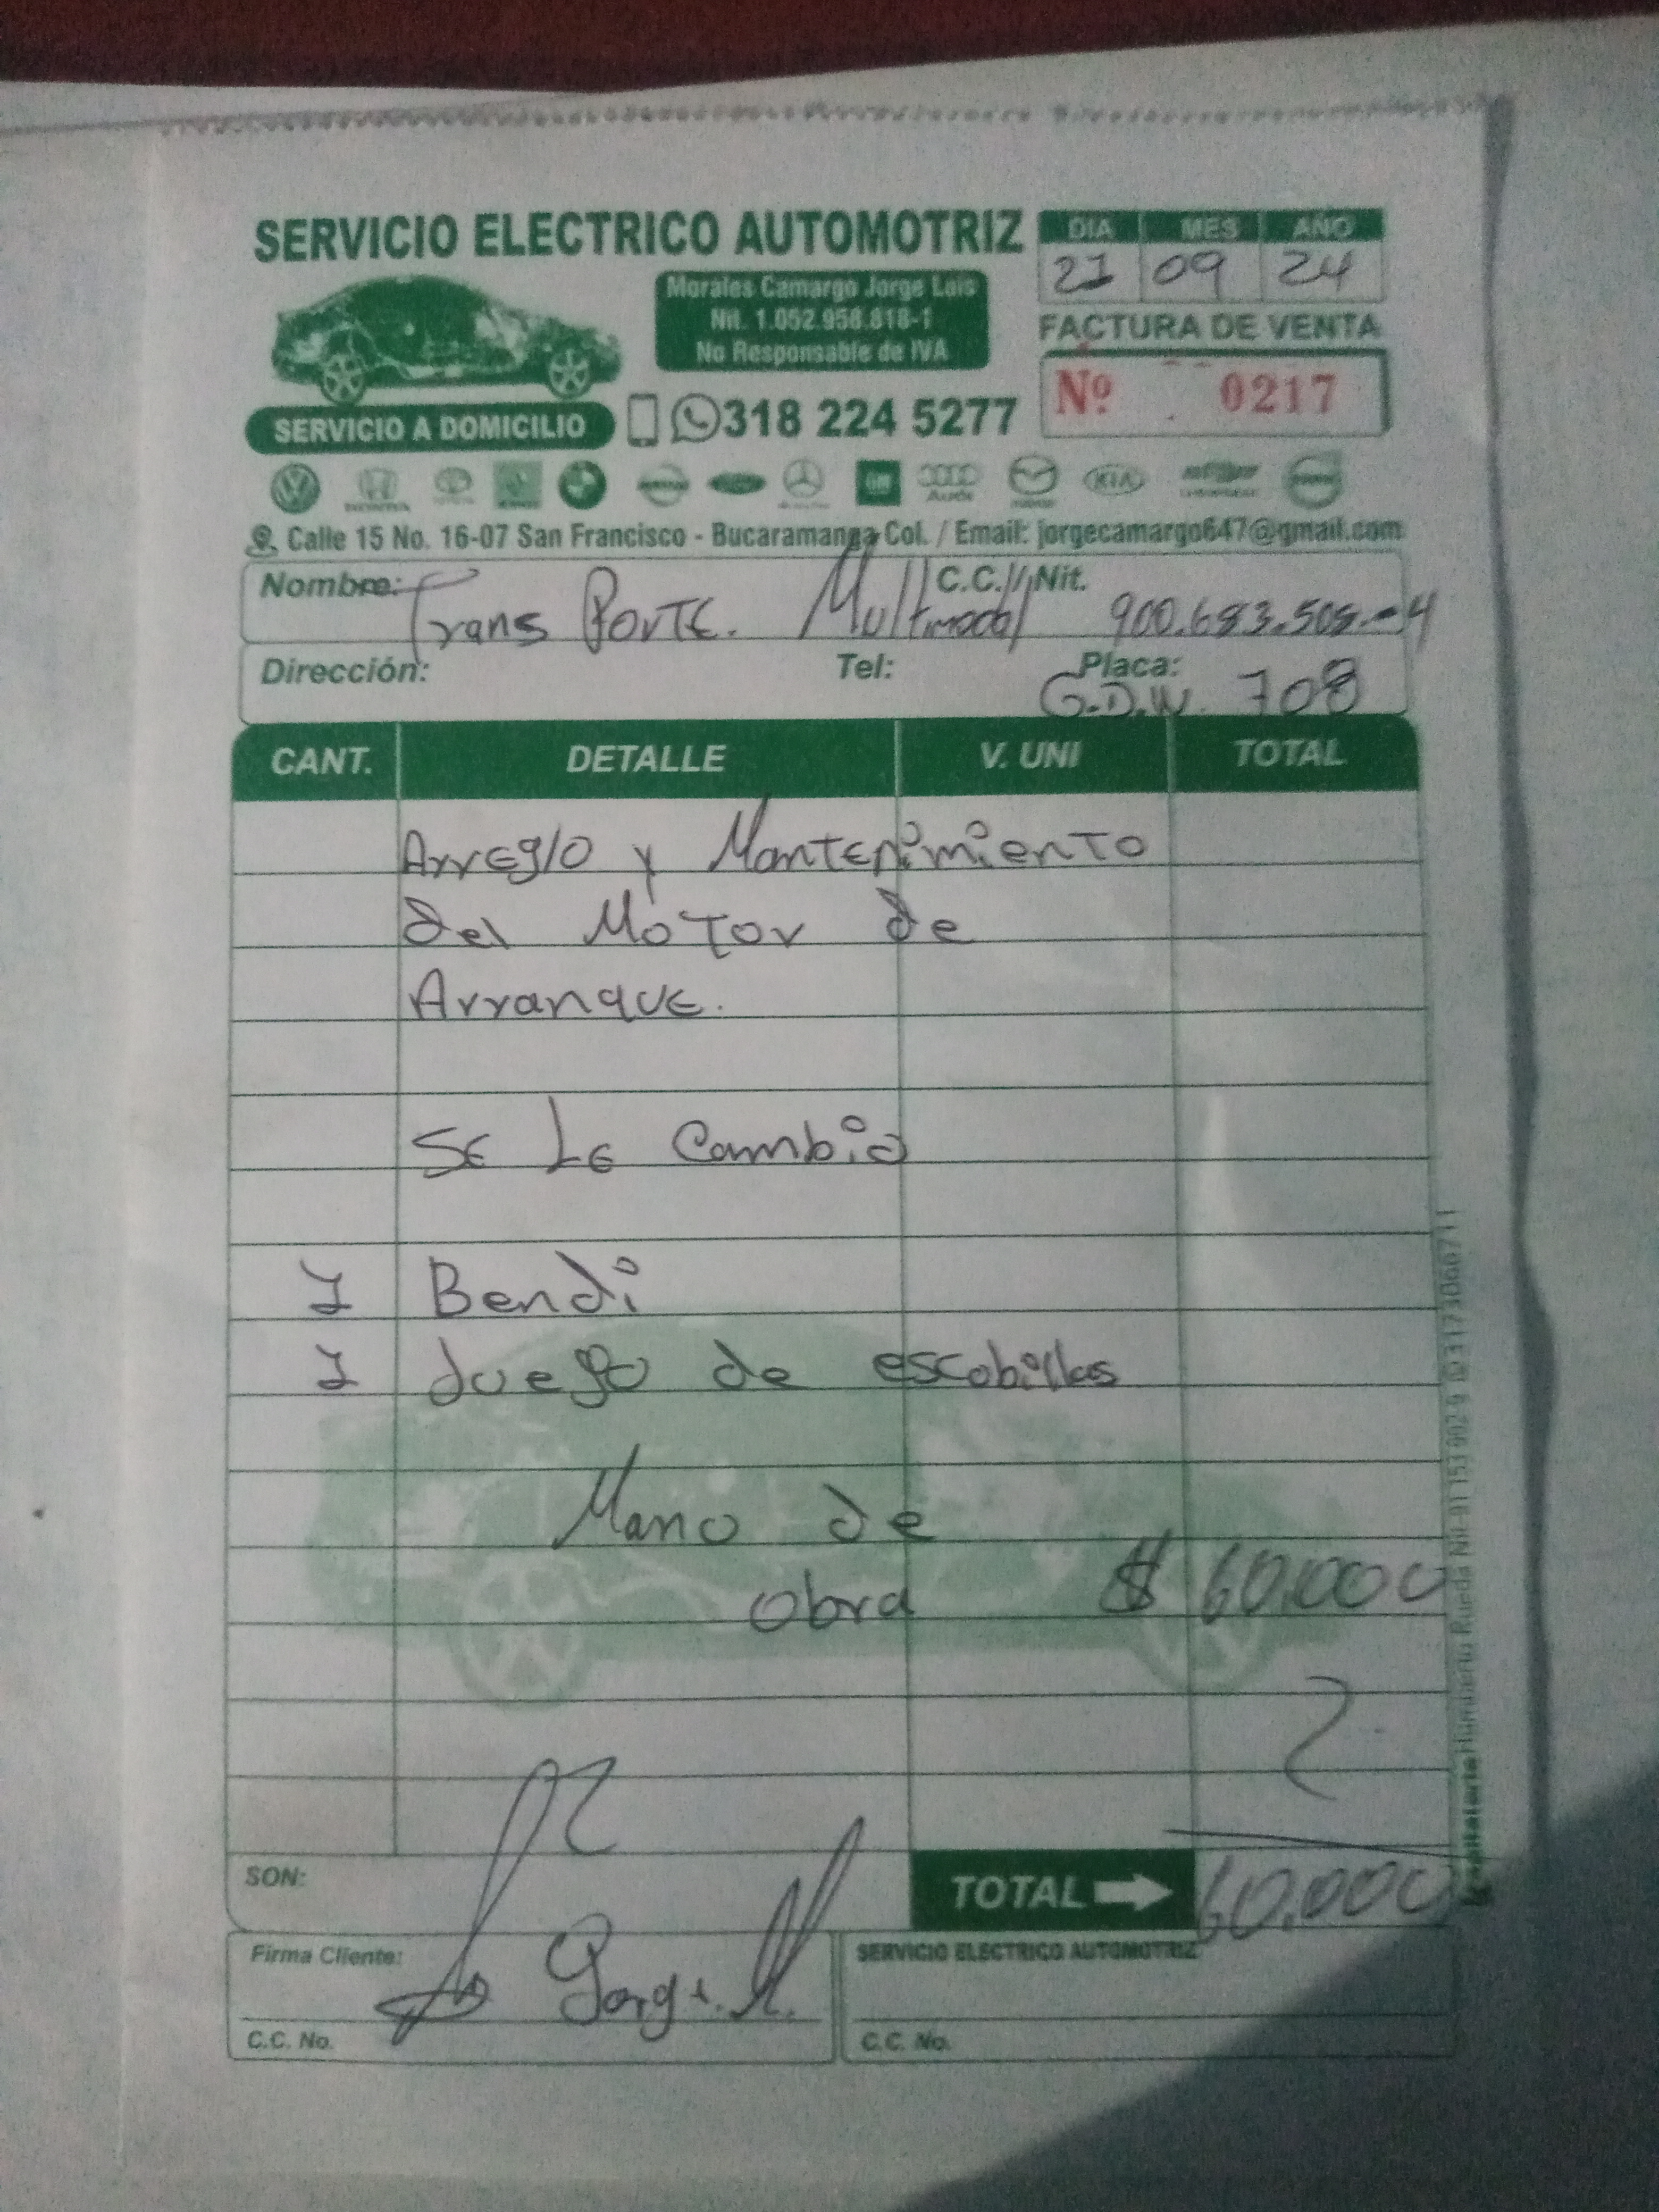 SERVICIO ELECTRICO AUTOMOTRIZ
DIA MES AÑO
21 09 24
Morales Camargo Jorge Luis
Nit. 1.052.958.818-1
No Responsable de IVA
FACTURA DE VENTA
Nº 0217
SERVICIO A DOMICILIO
318 224 5277
Audi KIA
Calle 15 No. 16-07 San Francisco - Bucaramanga Col. / Email: jorgecamargo647@gmail.com
Nombre: Trans PorTE. Multimodal C.C. / Nit. 900.683.508-4
Dirección: Tel: Placa: G.D.W. 708
CANT. DETALLE V. UNI TOTAL
ArrEglO y MantEnimiento
del MoTor de
ArranquE.
SE LE Cambio
1 Bendi
1 Juego de escobillas
Mano de
obra $ 60.000
SON: TOTAL 60.000
Firma Cliente: SERVICIO ELECTRICO AUTOMOTRIZ
C.C. No. C.C. No.